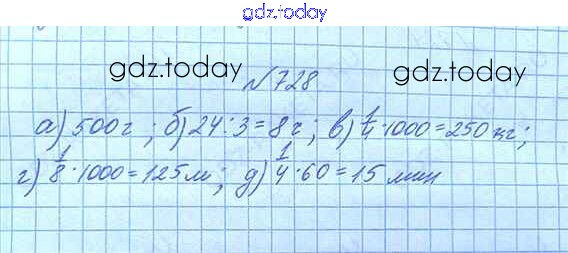 gdz.today
№728
gdz.today gdz.today
а) 500 г; б) 24 : 3 = 8 г; в) 1/4 · 1000 = 250 кг;
г) 1/8 · 1000 = 125 м; д) 1/4 · 60 = 15 мин